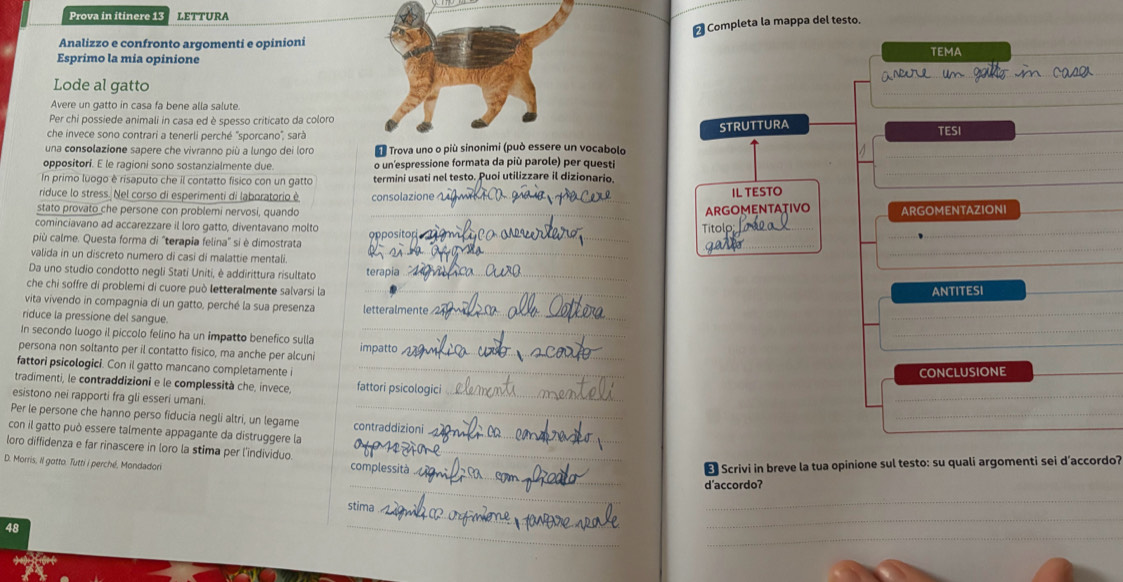 Prova in itinere 13 LETTURA
Analizzo e confronto argomenti e opinioni
Esprimo la mia opinione
Lode al gatto
Avere un gatto in casa fa bene alla salute.
Per chi possiede animali in casa ed è spesso criticato da coloro
che invece sono contrari a tenerli perché "sporcano", sarà
una consolazione sapere che vivranno più a lungo dei loro
oppositori. E le ragioni sono sostanzialmente due.
In primo luogo è risaputo che il contatto fisico con un gatto
riduce lo stress. Nel corso di esperimenti di laboratorio è
stato provato che persone con problemi nervosi, quando
cominciavano ad accarezzare il loro gatto, diventavano molto
più calme. Questa forma di "terapia felina" si è dimostrata
valida in un discreto numero di casi di malattie mentali.
Da uno studio condotto negli Stati Uniti, è addirittura risultato
che chi soffre di problemi di cuore può letteralmente salvarsi la
vita vivendo in compagnia di un gatto, perché la sua presenza
riduce la pressione del sangue.
In secondo luogo il piccolo felino ha un impatto benefico sulla
persona non soltanto per il contatto fisico, ma anche per alcuni
fattori psicologici. Con il gatto mancano completamente i
tradimenti, le contraddizioni e le complessità che, invece,
esistono nei rapporti fra gli esseri umani.
Per le persone che hanno perso fiducia negli altri, un legame
con il gatto può essere talmente appagante da distruggere la
loro diffidenza e far rinascere in loro la stima per l'individuo.
D. Morris, Il gatto. Tutti i perché, Mondadori
48
1 Trova uno o più sinonimi (può essere un vocabolo
o un'espressione formata da più parole) per questi
termini usati nel testo. Puoi utilizzare il dizionario.
consolazione significa gioia, piacere
oppositori significa
terapia significa cura
letteralmente significa alla lettera
impatto significa urto, scontro
fattori psicologici elementi mentali
contraddizioni significa contrasto,
opposizione
complessità significa
stima significa opinione,
2 Completa la mappa del testo.
TEMA
avere un gatto in casa
STRUTTURA
TESI
IL TESTO
ARGOMENTATIVO
Titolo: Lode al
gatto
ARGOMENTAZIONI
ANTITESI
CONCLUSIONE
3 Scrivi in breve la tua opinione sul testo: su quali argomenti sei d'accordo?
d'accordo?